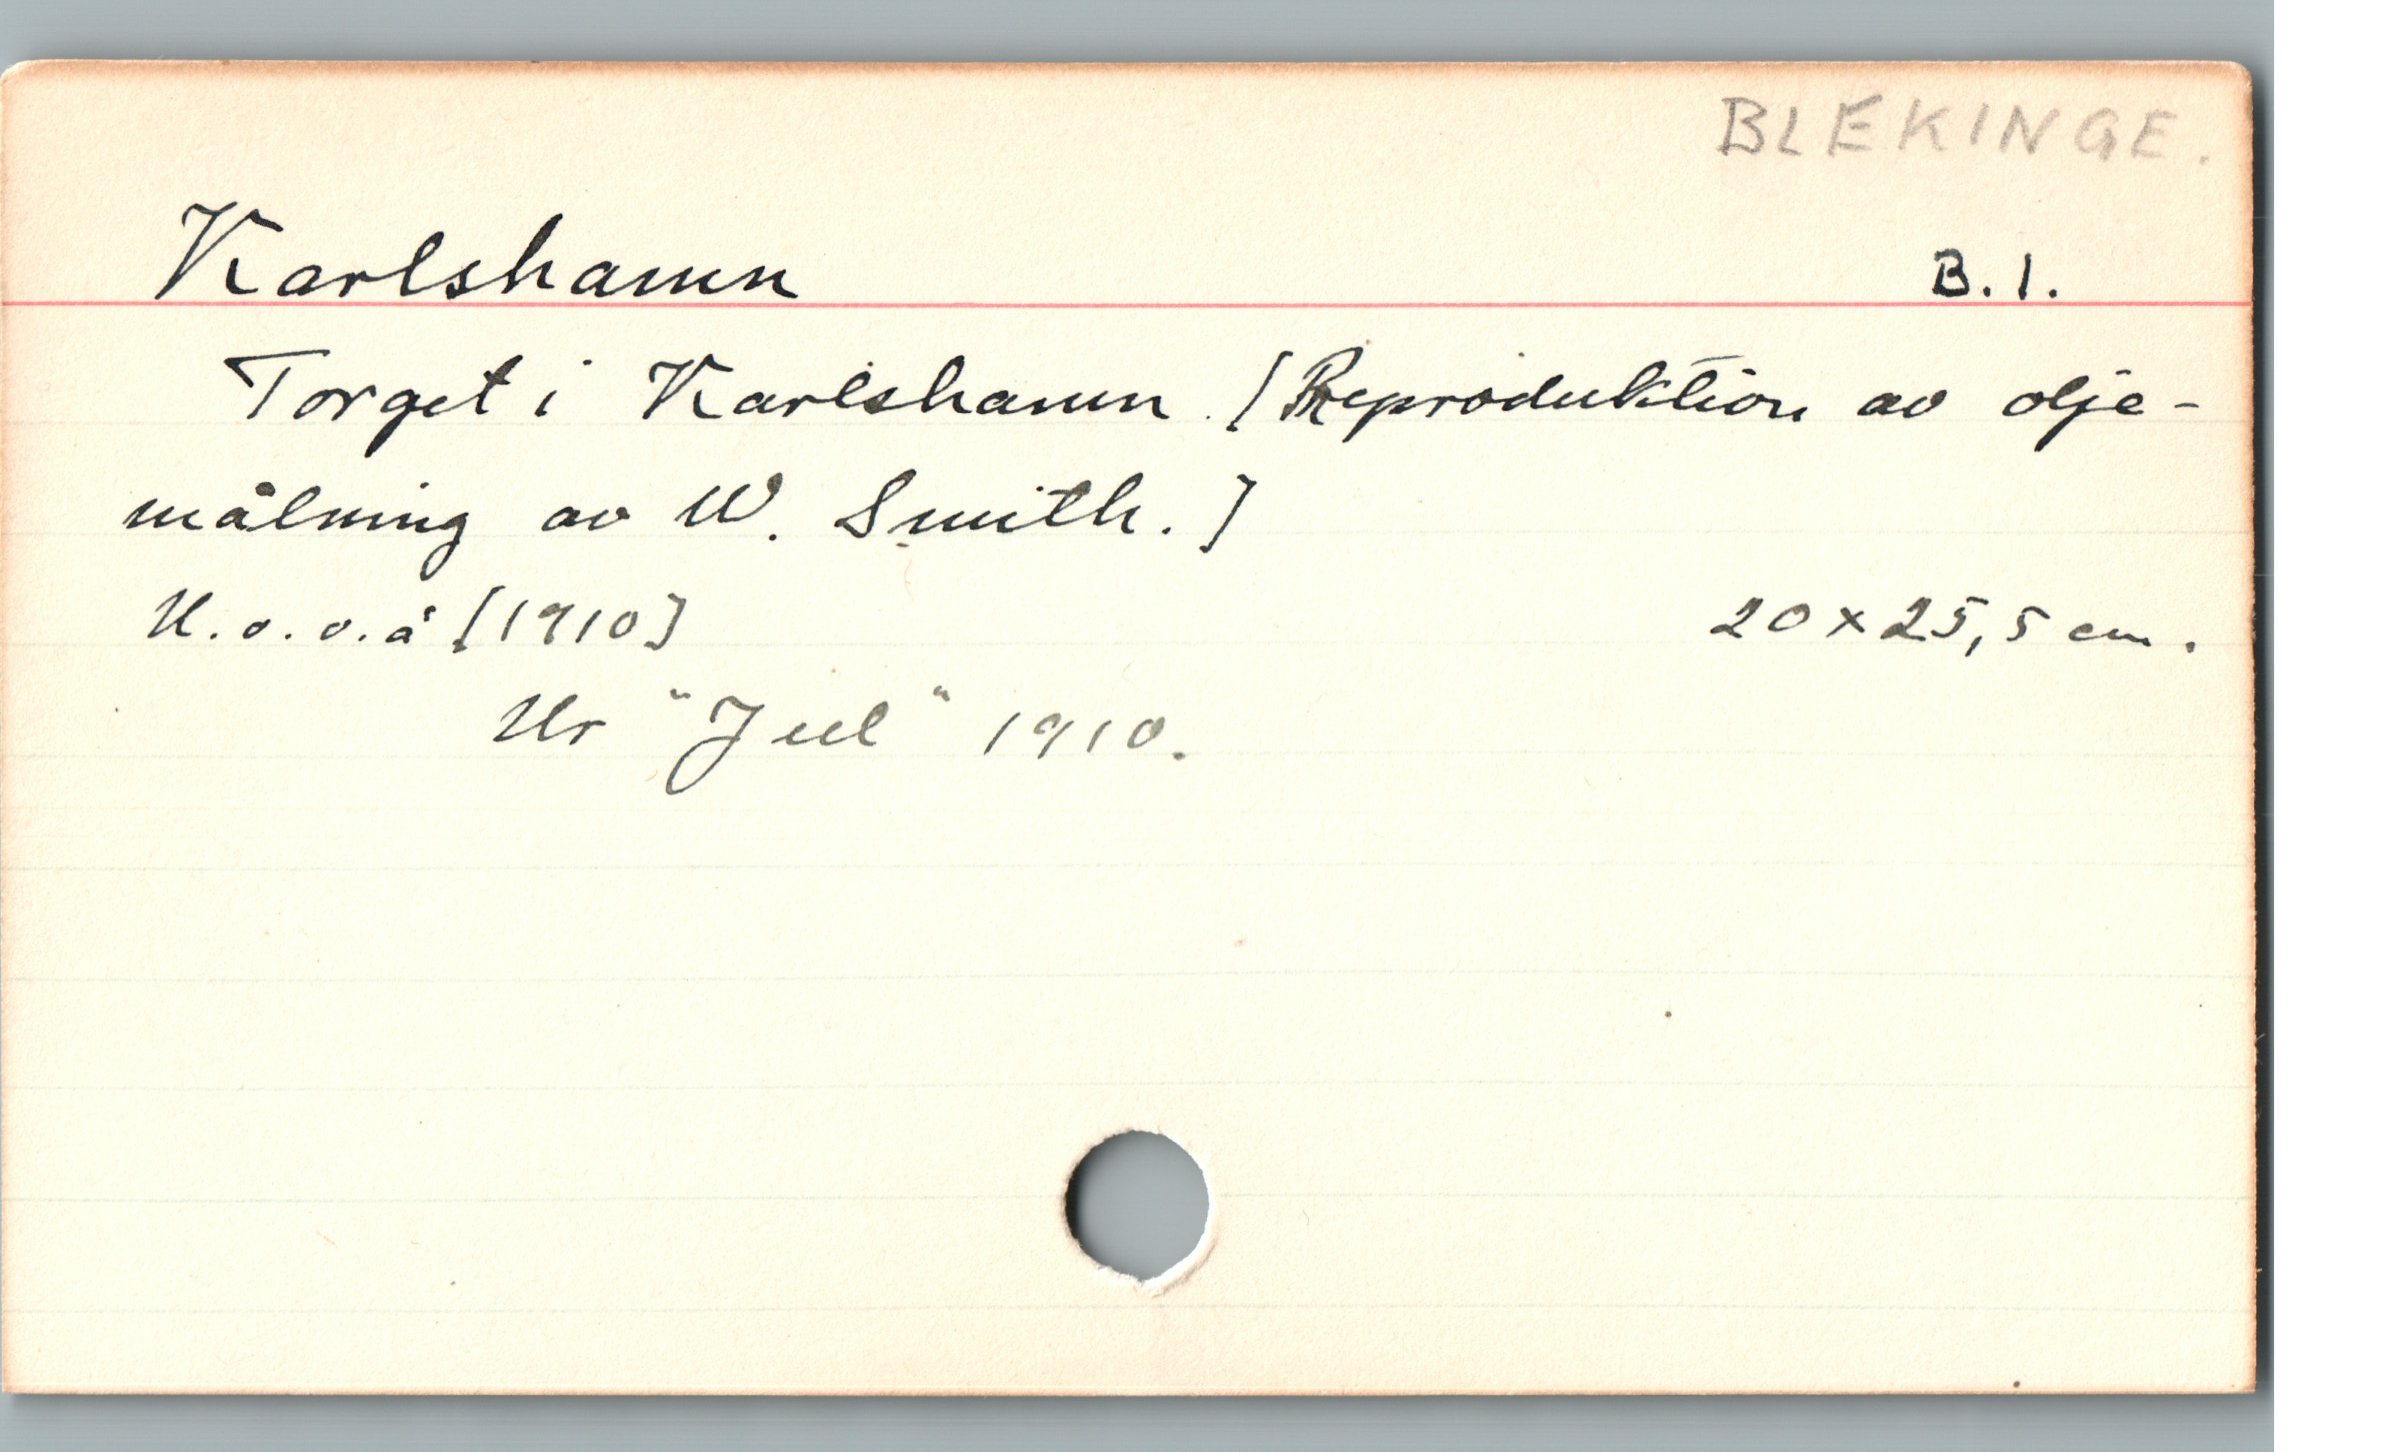 BLEKINGE.
Karlshamn B.1.
Torget i Karlshamn. [Reproduktion av olje-
målning av W. Smith.]
U.o.o.å [1910] 20x25,5 cm.
Ur "Jul" 1910.